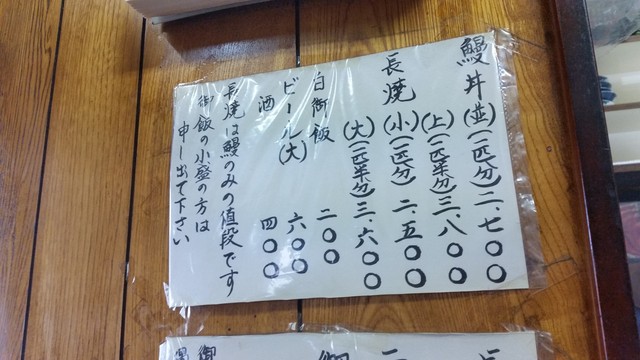 鰻丼(並)(一匹分)二、七〇〇
(上)(一匹半分)三、八〇〇
長焼(小)(一匹分)二、五〇〇
(大)(一匹半分)三、六〇〇
白御飯 二〇〇
ビール(大) 六〇〇
酒 四〇〇
長焼は鰻のみの値段です
御飯の小盛の方は
申し出て下さい